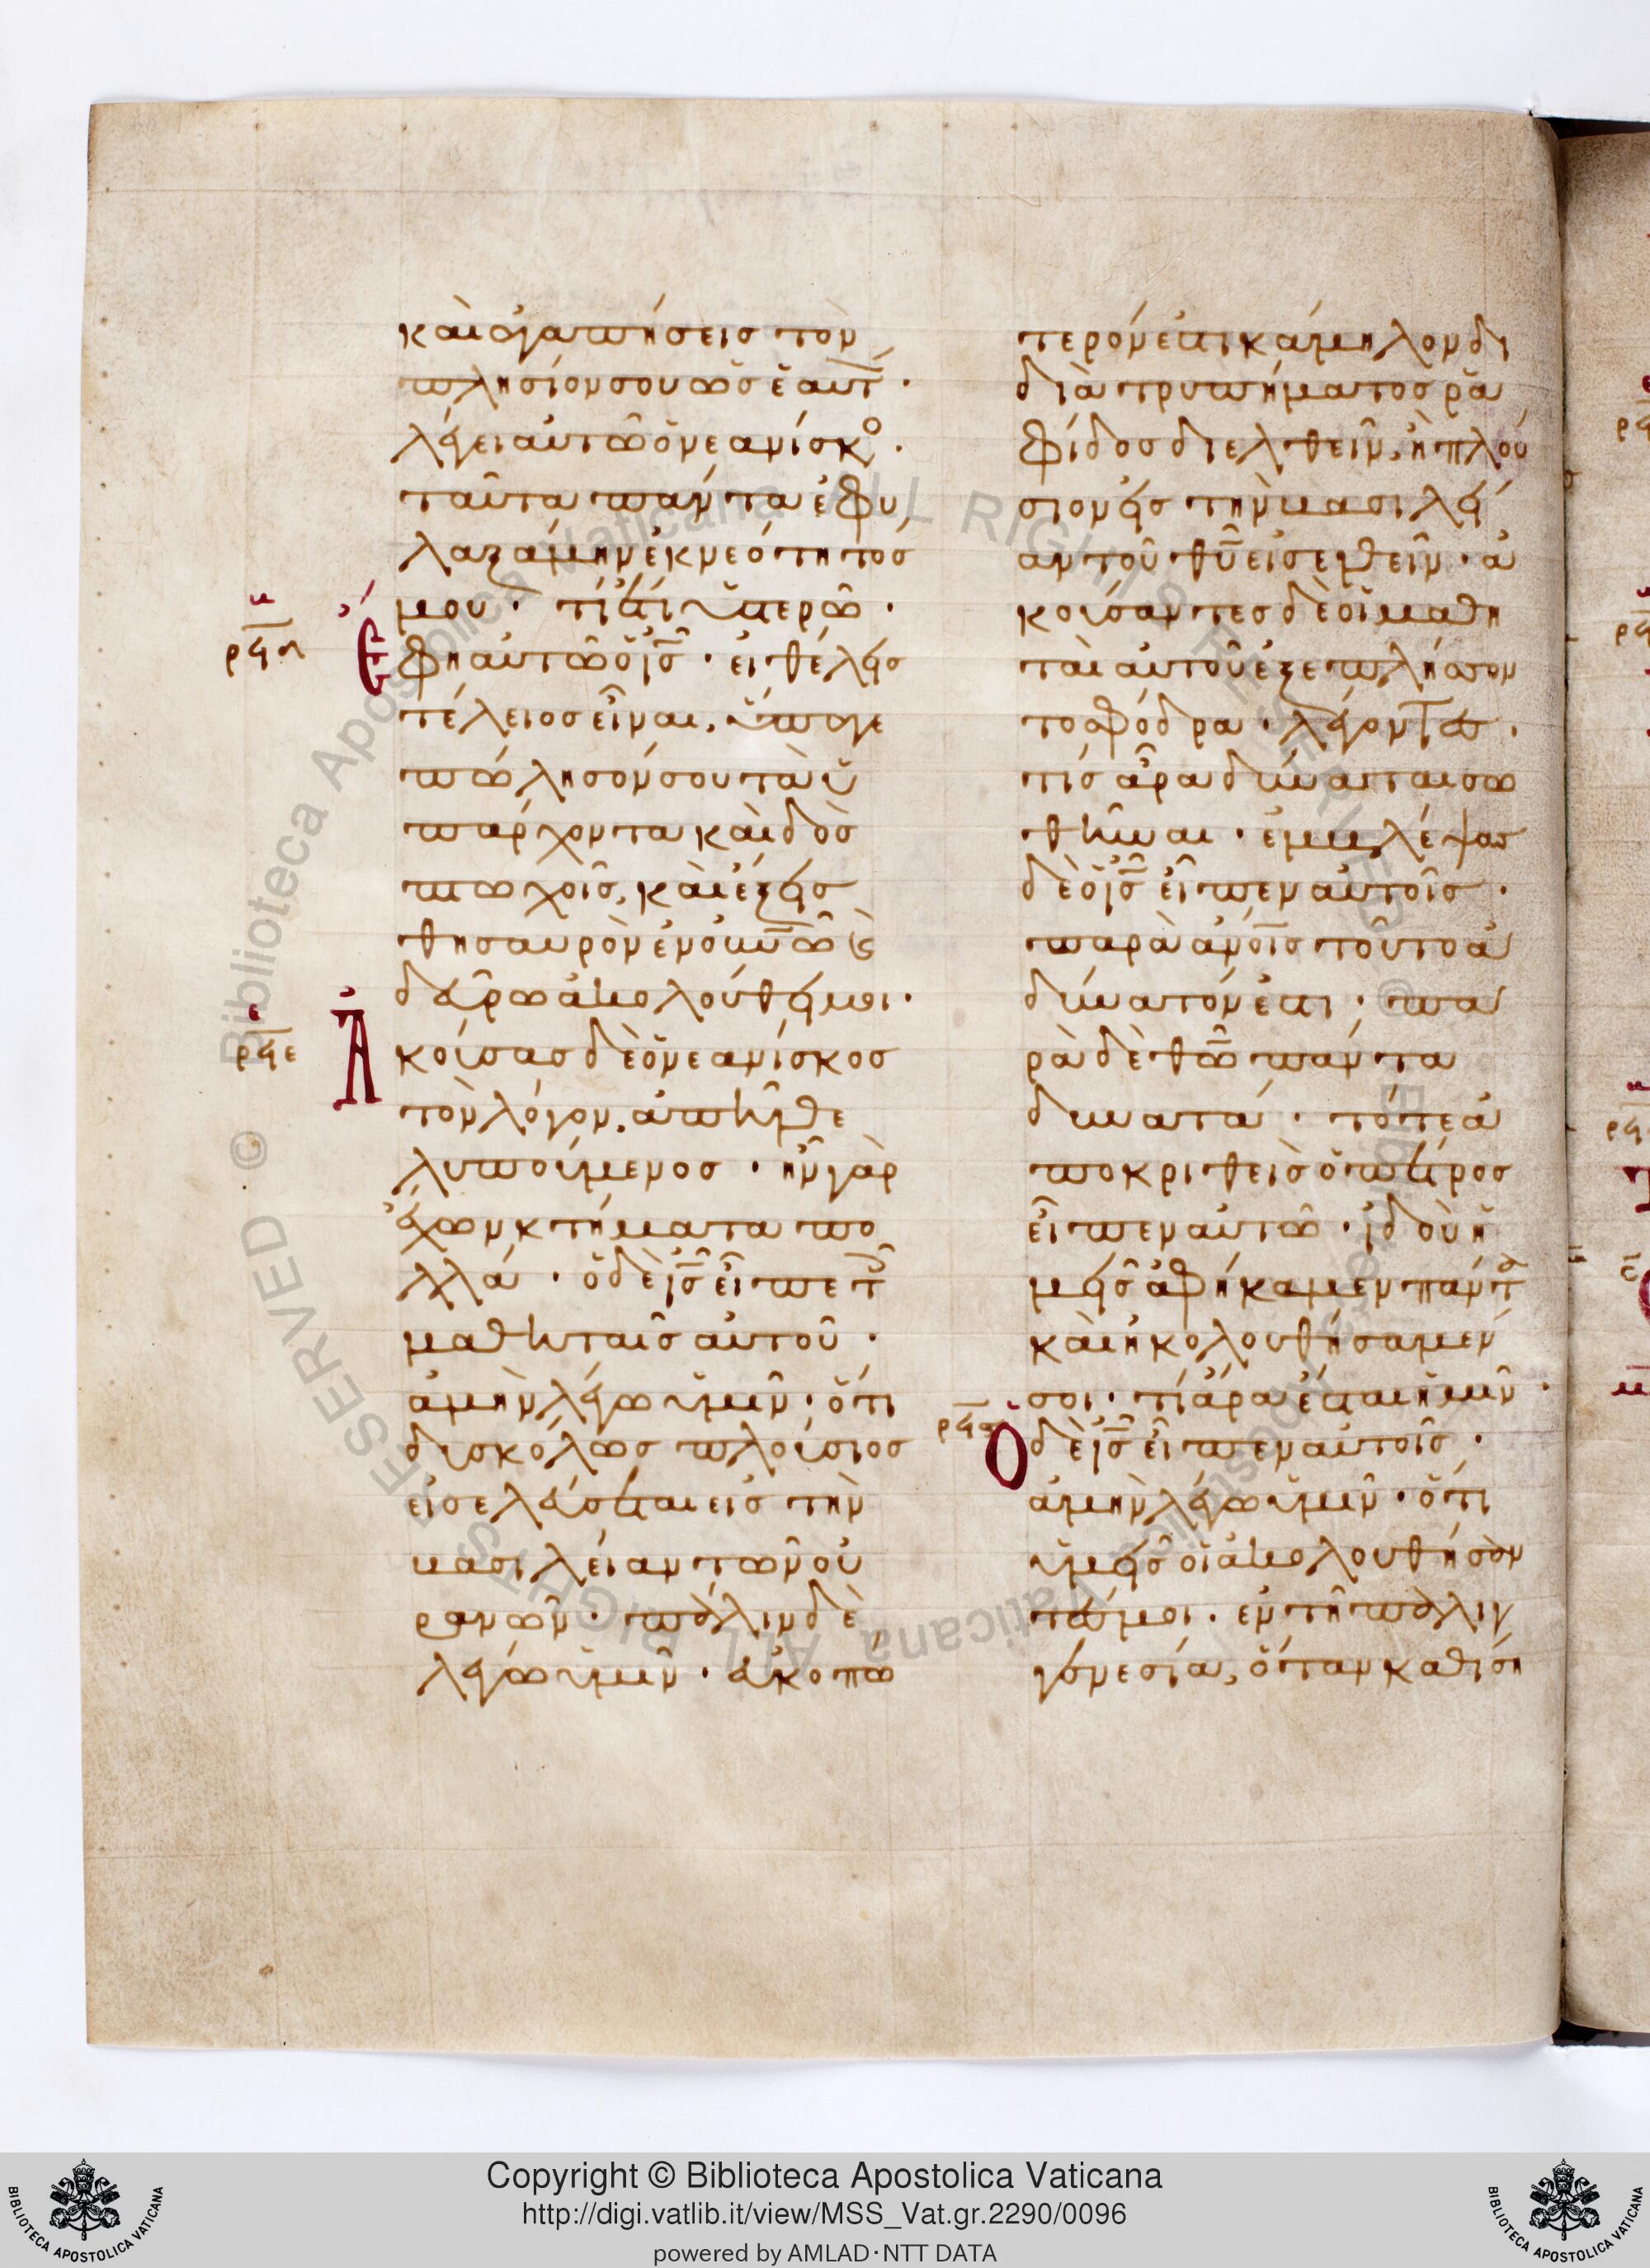 καὶ ἀγαπήσεις τὸν
πλησίον σου ὡς ἑαυτ̅ ·
λέγει αὐτῶ ὁ νεανίσκο ·
ταῦτα πάντα ἐφυ
λαξάμην ἐκ νεότητός
μου · τί ἔτι ὑστερῶ ·
ρϟδ
Ἔ
φη αὐτῶ ὁ ἰ̅ς̅ · εἰ θέλεις
τέλειος εἶναι, ὕπαγε
πώλησόν σου τὰ ὑ
πάρχοντα καὶ δὸς
πτωχοῖς, καὶ ἕξεις
θησαυρὸν ἐν ο̅υ̅ν̅ω̅ ϗ
δεῦρο ἀκολούθει μοι ·
ρϟε
Ἀ
κούσας δὲ ὁ νεανίσκος
τὸν λόγον, ἀπῆλθε
λυπούμενος · ἦν γὰρ
ἔχων κτήματα πο
λλά · ὁ δὲ ἰ̅ς̅ εἶπε τ
μαθηταῖς αὐτοῦ ·
ἀμὴν λέγω ὑμῖν · ὅτι
δυσκόλως πλούσιος
εἰσελεύσεται εἰς τὴν
βασιλείαν τῶν οὐ
ρανῶν · πάλιν δὲ
λέγω ὑμῖν · εὐκοπώ
τερόν ἐστι κάμηλον δι
διὰ τρυπήματος ῥα
φίδος διελθεῖν, ἢ πλού
σιον εἰς τὴν βασιλεί
αν τοῦ θ̅υ̅ εἰσελθεῖν · ἀ
κούσαντες δὲ οἱ μαθη
ταὶ αὐτοῦ ἐξεπλήσσον
το σφόδρα · λέγοντες ·
τίς ἄρα δύναται σω
θῆναι · ἐμβλέψας
δὲ ὁ ἰ̅ς̅ εἶπεν αὐτοῖς ·
παρὰ ἀ̅ν̅ο̅ι̅ς̅ τοῦτο ἀ
δύνατόν ἐστι · πα
ρὰ δὲ θ̅ω̅ πάντα
δυνατά · τότε ἀ
ποκριθεὶς ὁ πέτρος
εἶπεν αὐτῶ · ἰδοὺ ἡ
μεῖς ἀφήκαμεν πάντα
καὶ ἠκολουθήσαμέν
σοι · τί ἄρα ἔσται ἡμῖν ·
ρϟϛ
Ὁ
δὲ ἰ̅ς̅ εἶπεν αὐτοῖς ·
ἀμὴν λέγω ὑμῖν · ὅτι
ὑμεῖς οἱ ἀκολουθήσαν
τές μοι · ἐν τῆ παλιγ
γενεσία, ὅταν καθίση
Copyright © Biblioteca Apostolica Vaticana
http://digi.vatlib.it/view/MSS_Vat.gr.2290/0096
powered by AMLAD·NTT DATA